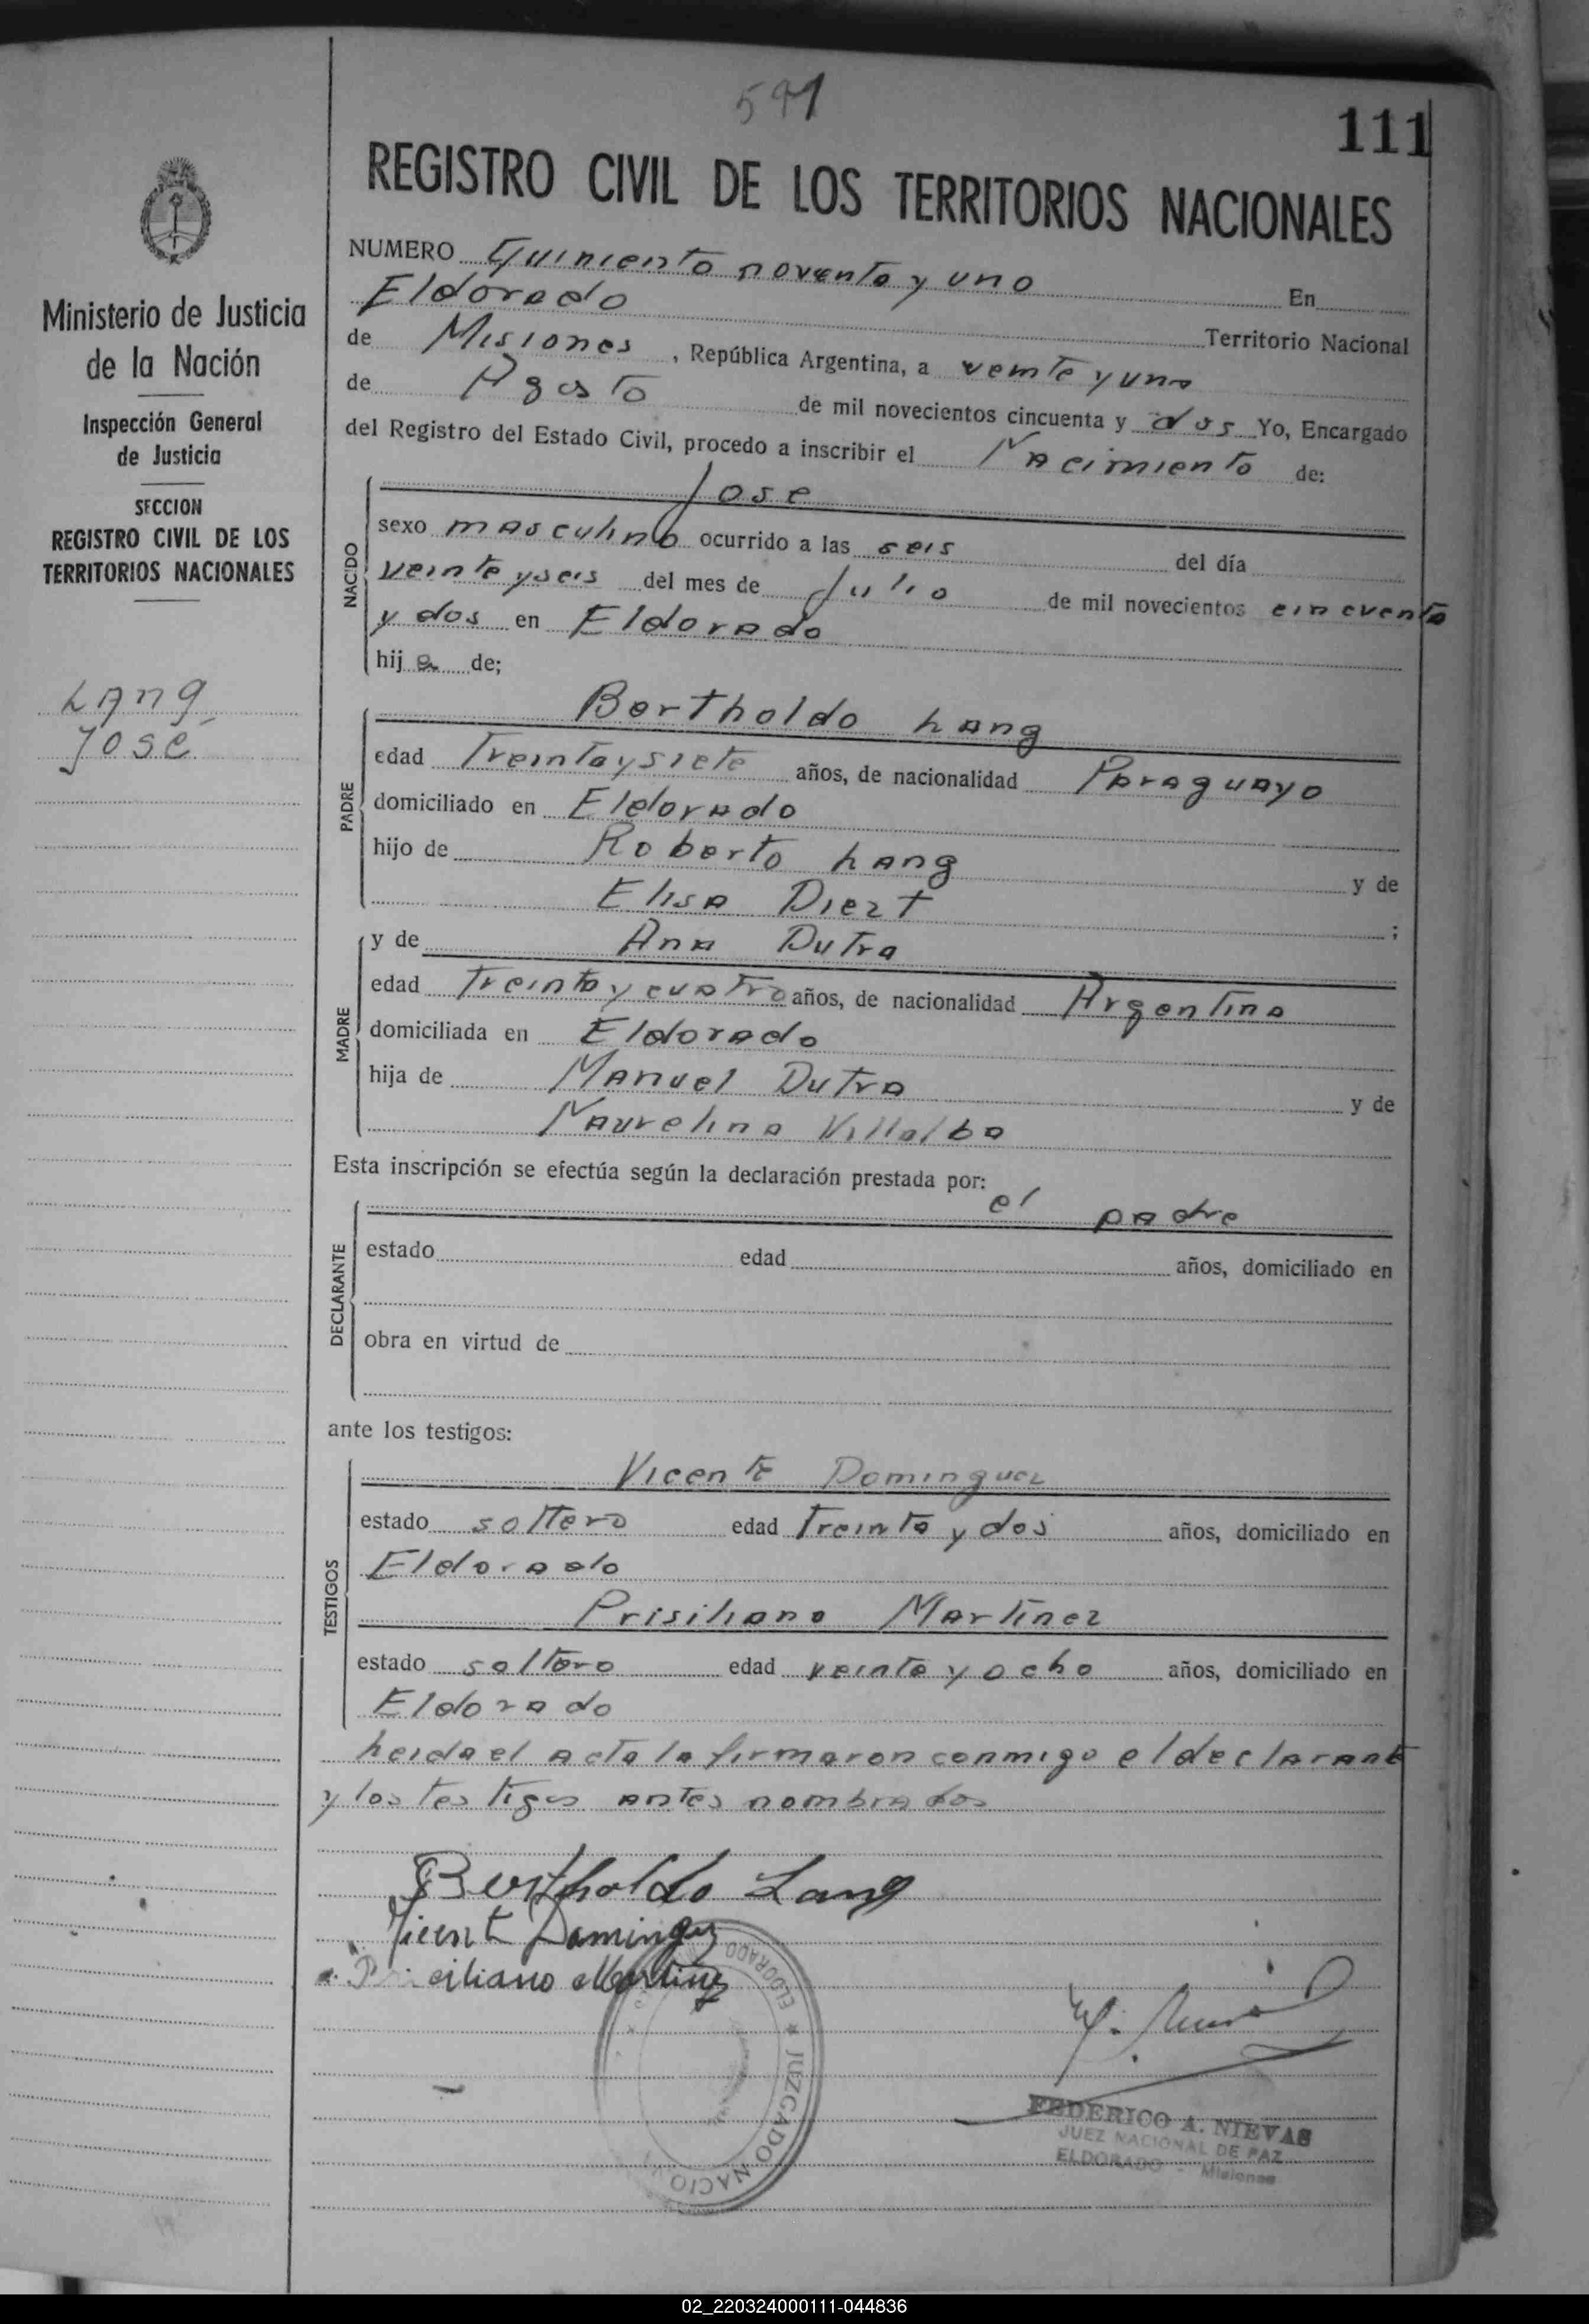 591
111
REGISTRO CIVIL DE LOS TERRITORIOS NACIONALES
Ministerio de Justicia
de la Nación
Inspección General
de Justicia
SECCION
REGISTRO CIVIL DE LOS
TERRITORIOS NACIONALES
Lang,
José
NUMERO Quiniento noventa y uno En
Eldorado Territorio Nacional
de Misiones, República Argentina, a veinte y uno
de Agosto de mil novecientos cincuenta y dos Yo, Encargado
del Registro del Estado Civil, procedo a inscribir el Nacimiento de:
NACIDO
Jose
sexo masculino ocurrido a las seis del día
veinte y seis del mes de Julio de mil novecientos cincuenta
y dos en Eldorado
hij o de;
PADRE
Bertholdo Lang
edad Treinta y siete años, de nacionalidad Paraguayo
domiciliado en Eldorado
hijo de Roberto Lang y de
Elisa Diezt ;
MADRE
y de Ana Dutra
edad Treinta y cuatro años, de nacionalidad Argentina
domiciliada en Eldorado
hija de Manuel Dutra y de
Naurelina Villalba
Esta inscripción se efectúa según la declaración prestada por:
DECLARANTE
el padre
estado edad años, domiciliado en
obra en virtud de
ante los testigos:
TESTIGOS
Vicente Dominguez
estado soltero edad Treinta y dos años, domiciliado en
Eldorado
Prisiliano Martinez
estado soltero edad veinte y ocho años, domiciliado en
Eldorado
Leida el acta la firmaron conmigo el declarante
y los testigos antes nombrados
Bertholdo Lang
Vicente Dominguez
Prisciliano Martinez
ELDORADO ★ JUZGADO NACIO
FEDERICO A. NIEVAS
JUEZ NACIONAL DE PAZ
ELDORADO - Misiones
02_220324000111-044836